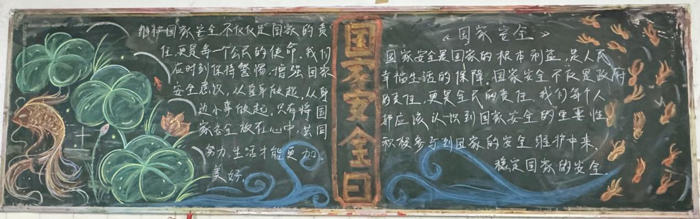 维护国家安全不仅仅是国家的责
任,更是每一个公民的使命.我们
应时刻保持警惕,增强国家
安全意识,从自身做起,从身
边小事做起,只有将国
家安全放在心中,共同
努力,生活才能更加
美好
国家安全日
《国家安全》
国家安全是国家的根本利益,是人民
幸福生活的保障.国家安全不仅是政府
的责任,更是全民的责任.我们每个人
都应该认识到国家安全的重要性,
积极参与到国家的安全维护中来.
稳定国家的安全.